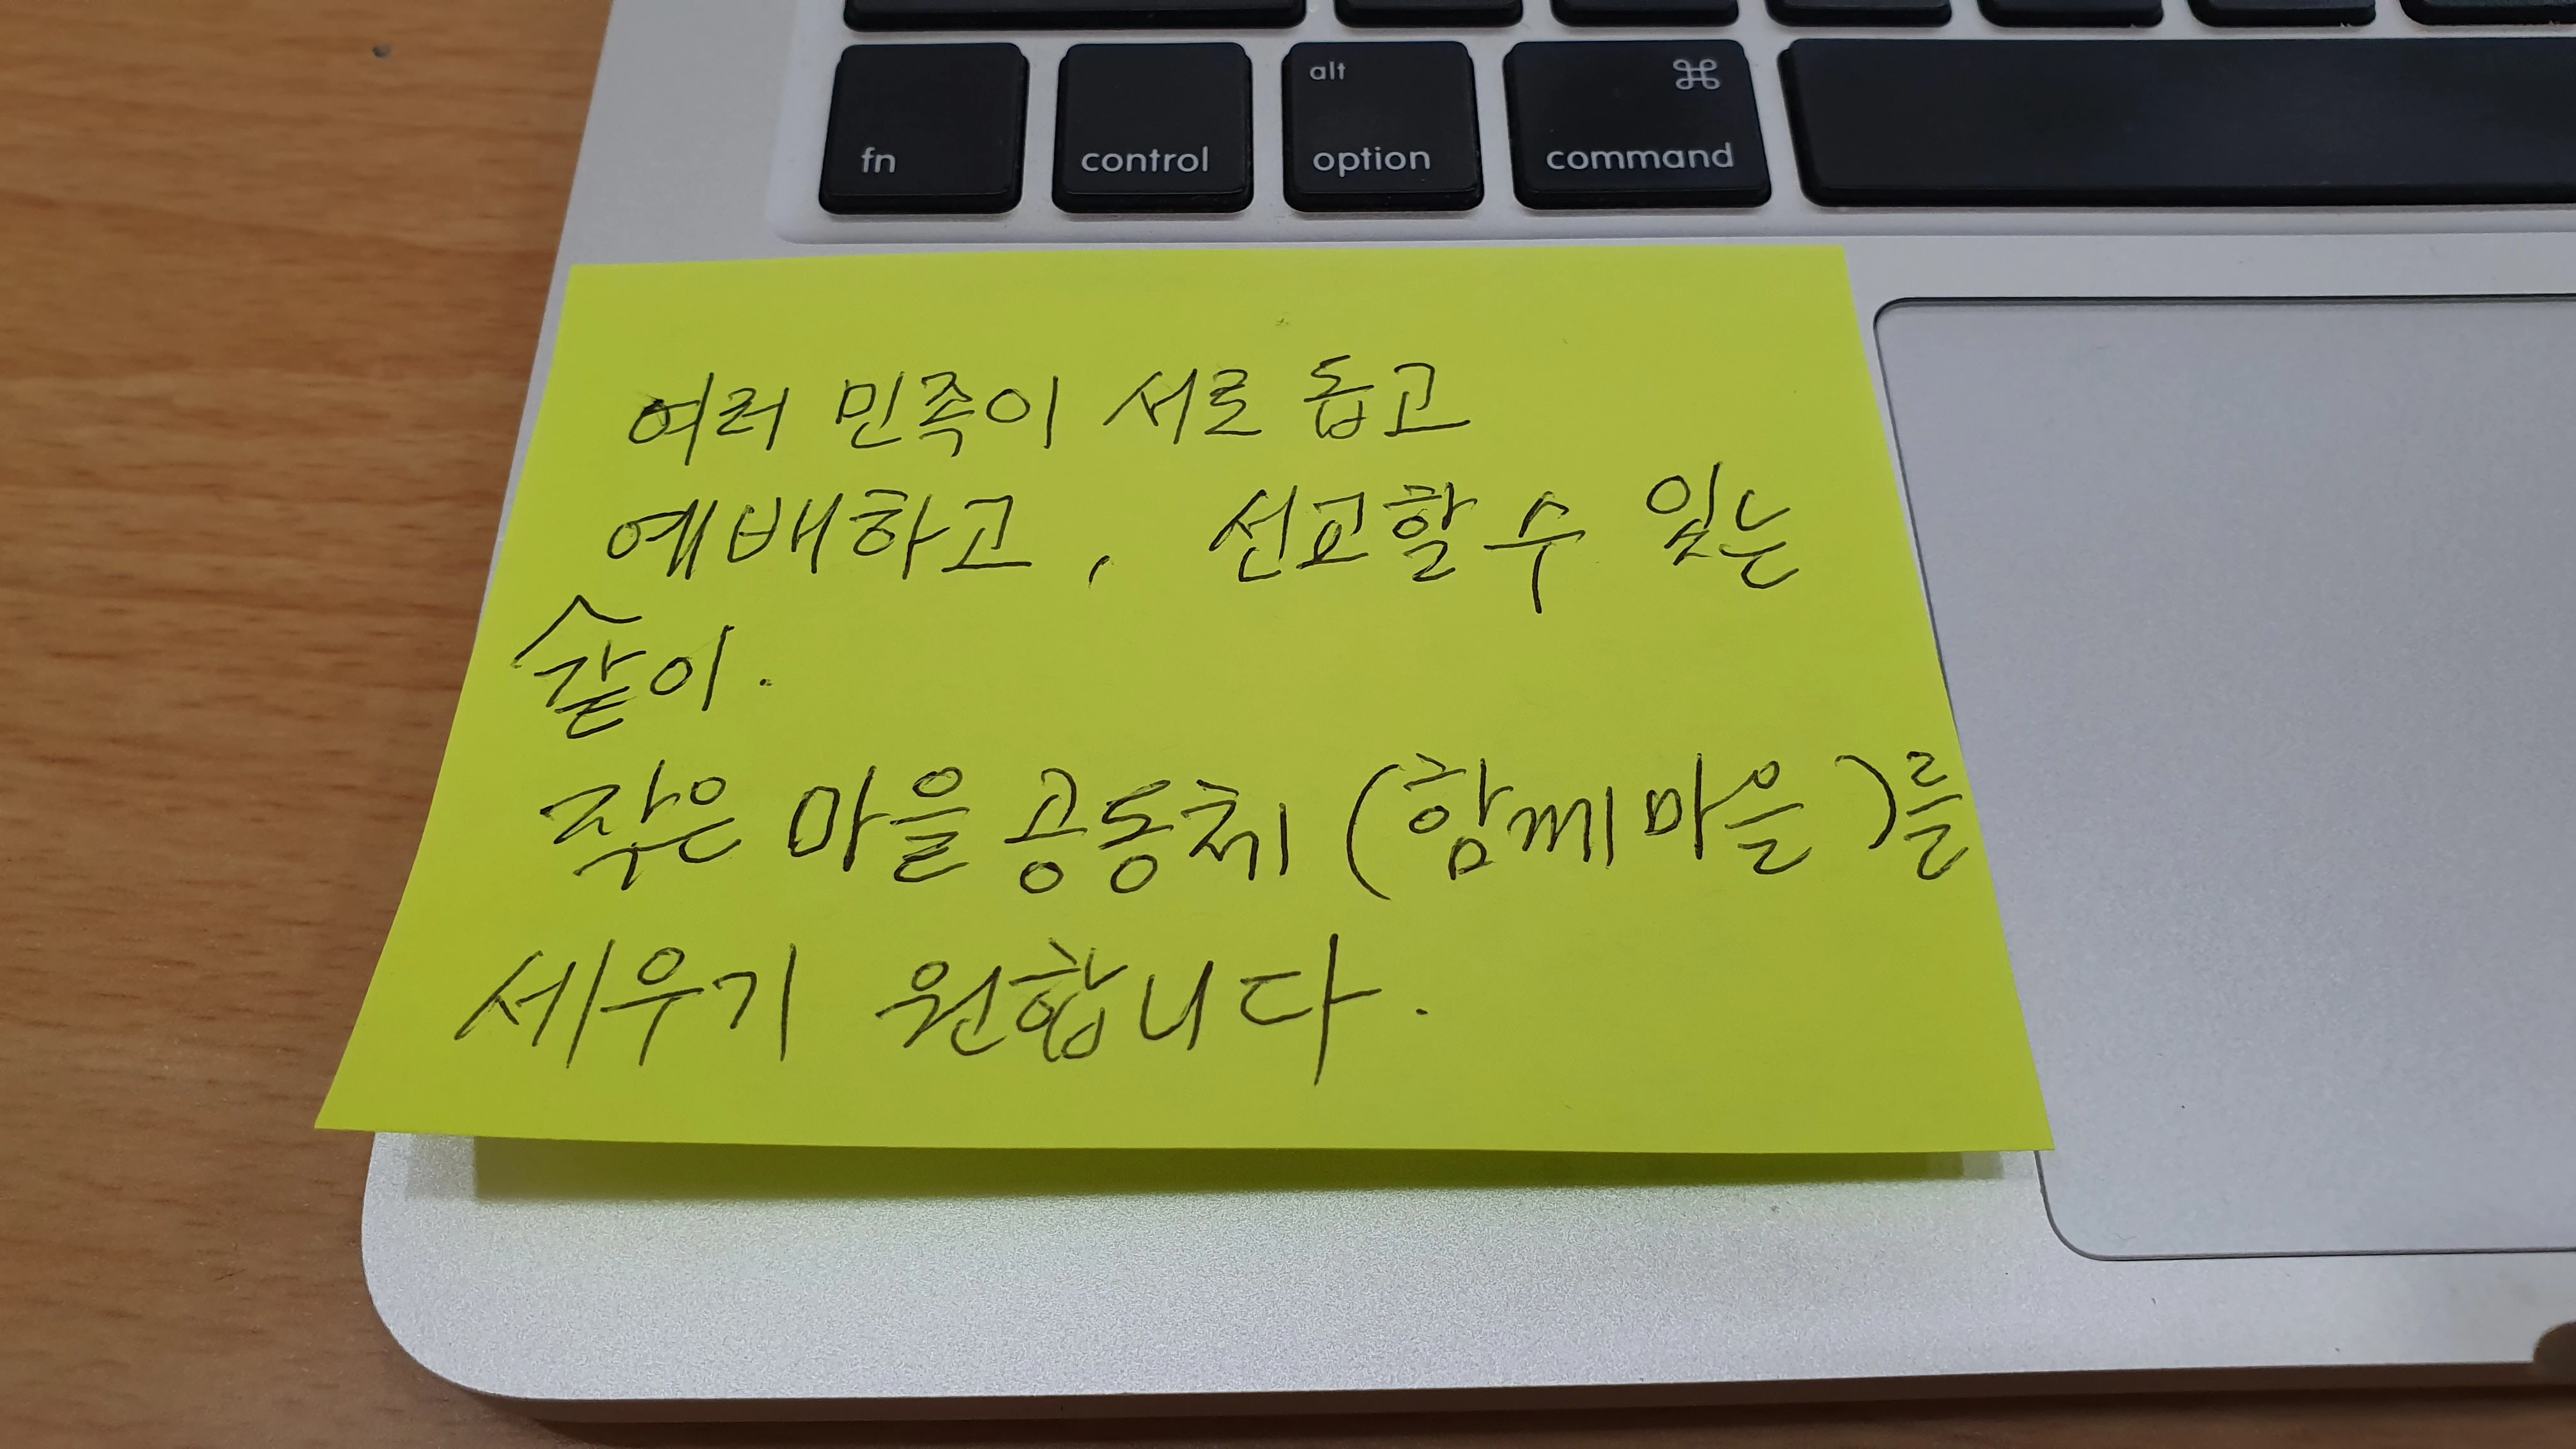 alt ⌘
fn control option command
여러 민족이 서로 돕고
예배하고, 선교할 수 있는
같이.
작은 마을 공동체 (함께마을)를
세우기 원합니다.